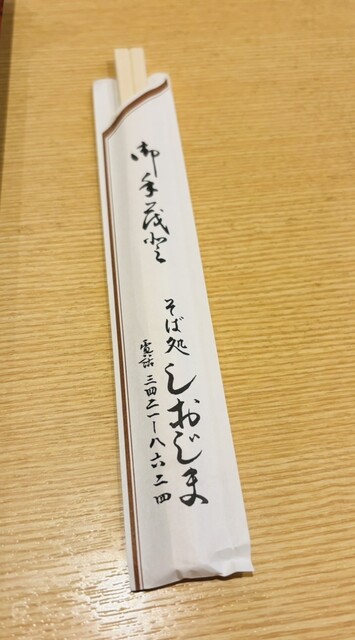 御手茂登
そば処
しおじま
電話 三四二一ー八六二四